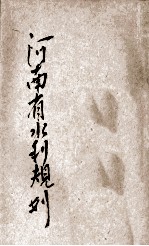 河南省水利規則